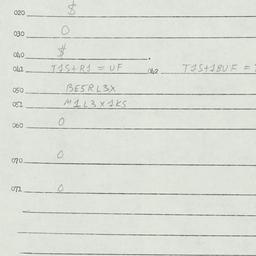 020 $
030 0
040 $
041 T1S+R1 = UF 042 T1S+1BUF =
050 BE5RL3X
051 M1L3X1KS
060 0
070 0
071 0